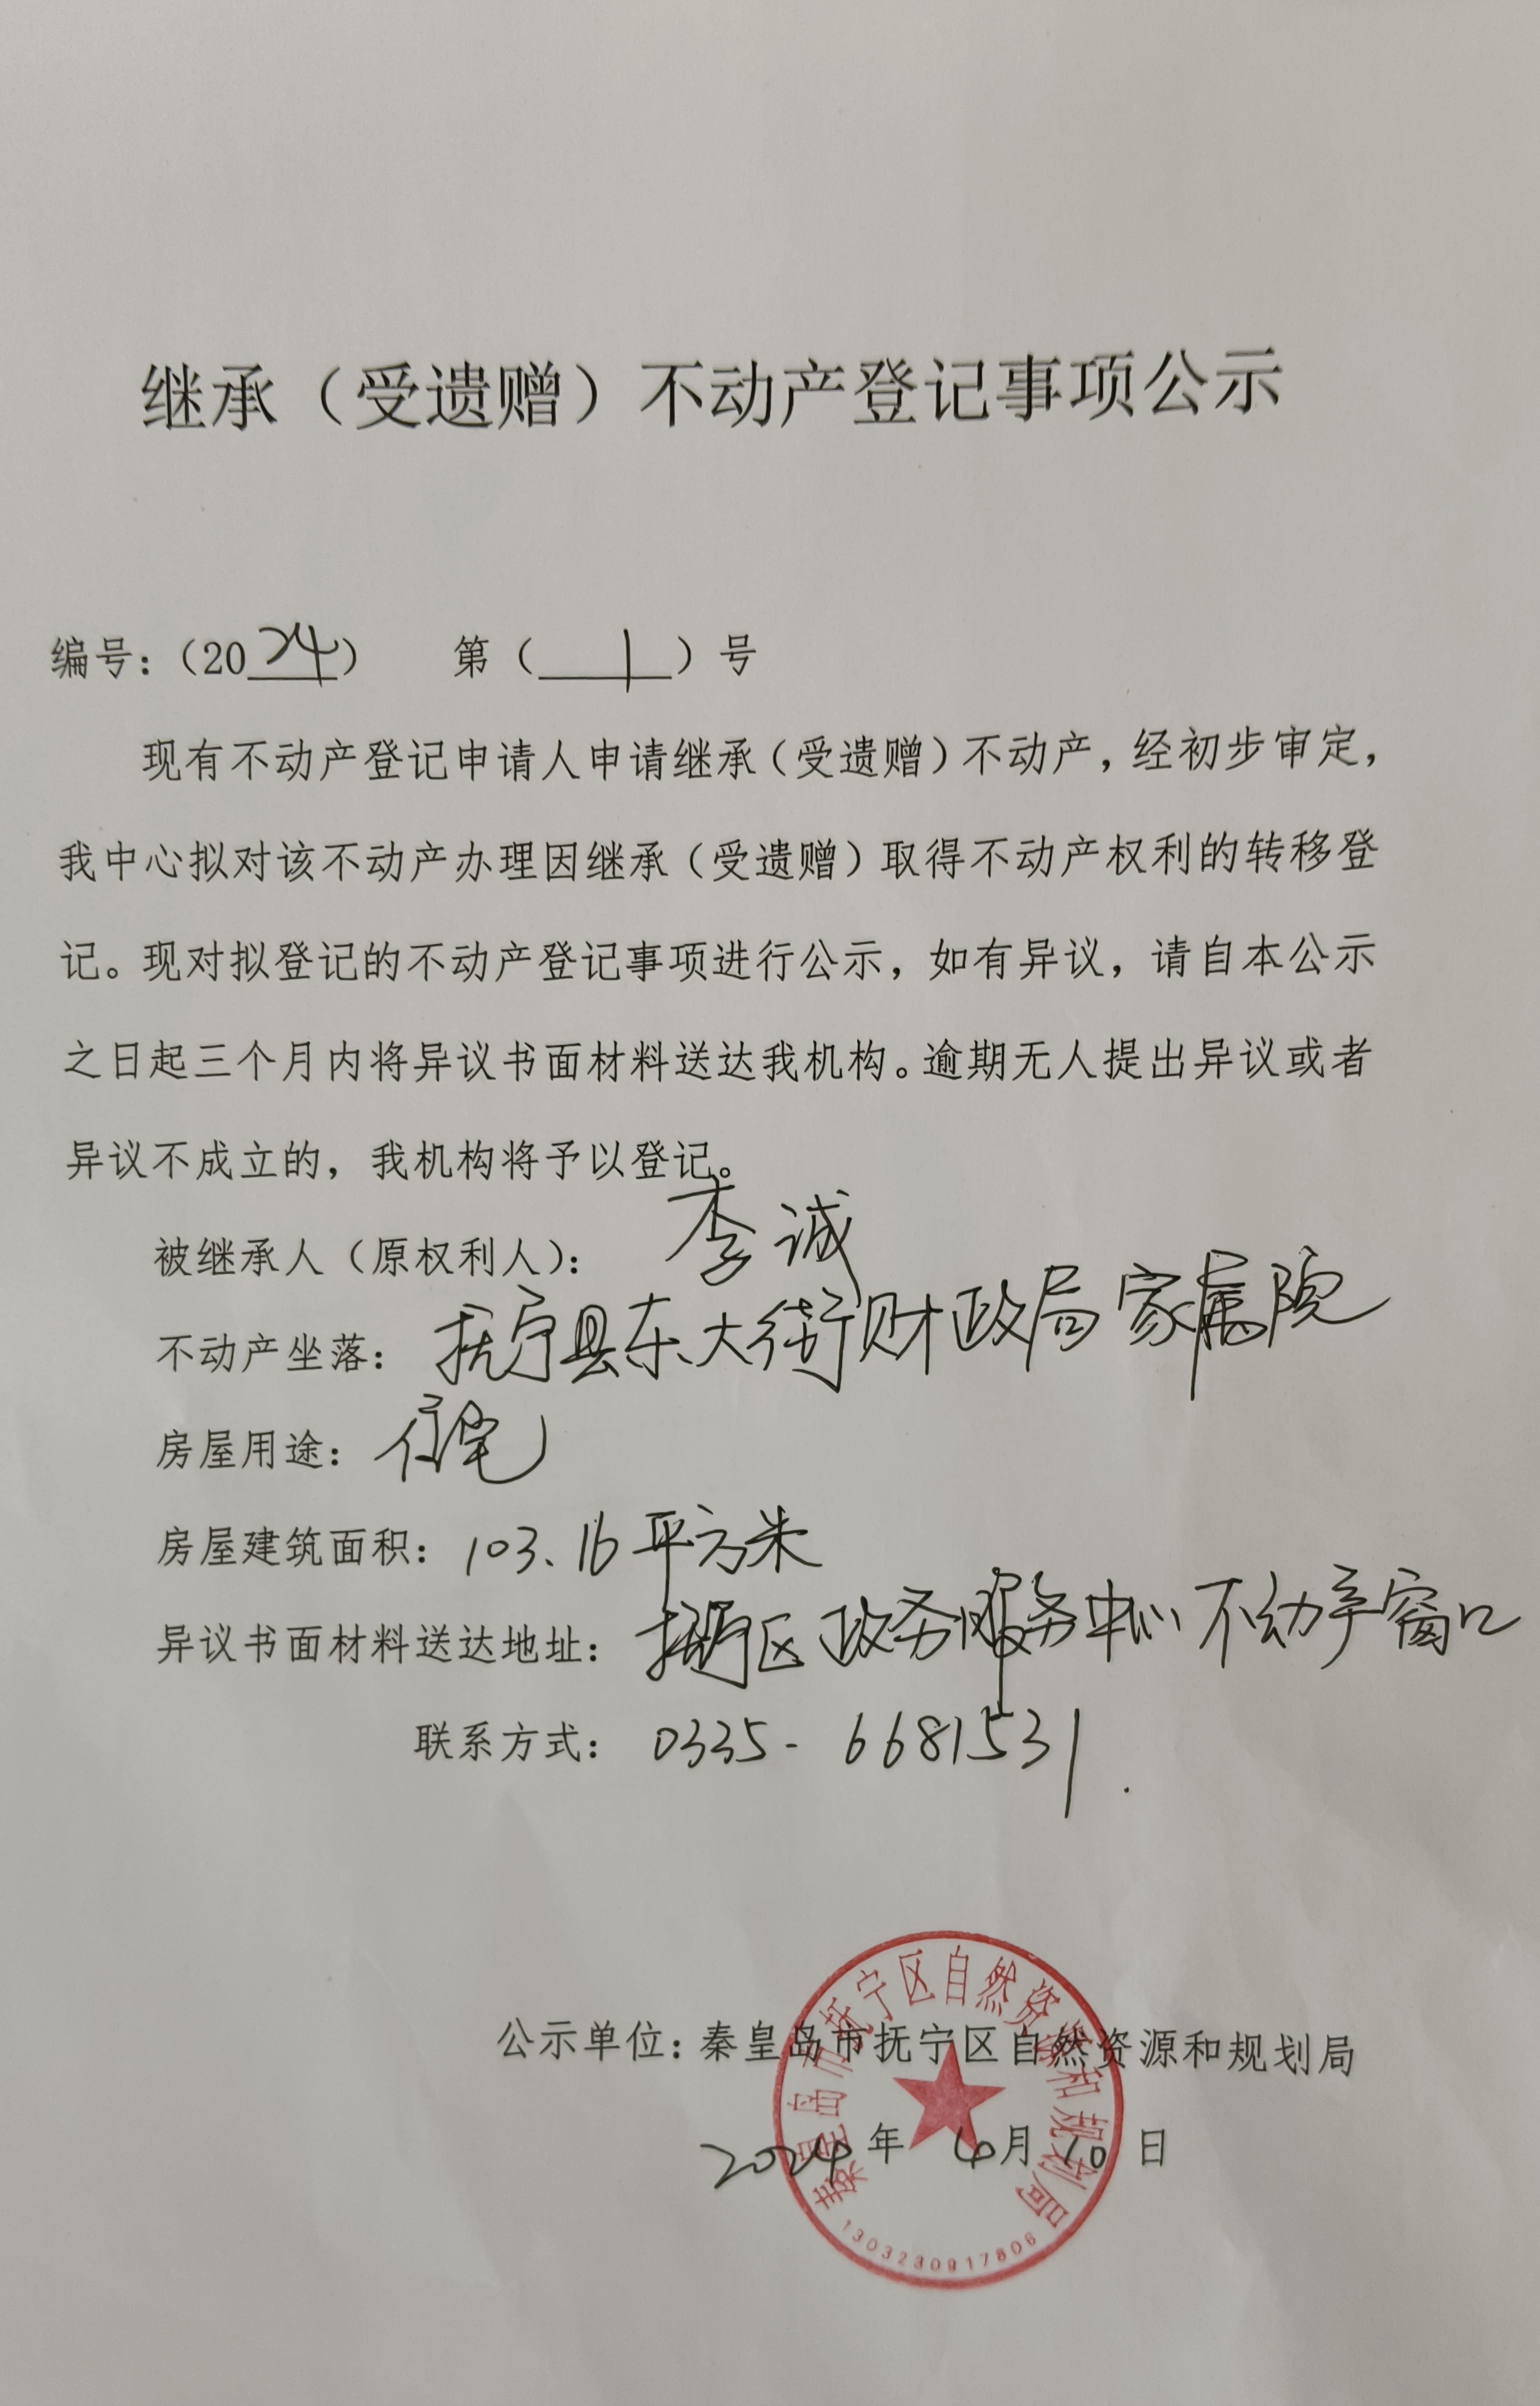 继承（受遗赠）不动产登记事项公示
编号：（2024） 第（1）号
现有不动产登记申请人申请继承（受遗赠）不动产，经初步审定，
我中心拟对该不动产办理因继承（受遗赠）取得不动产权利的转移登
记。现对拟登记的不动产登记事项进行公示，如有异议，请自本公示
之日起三个月内将异议书面材料送达我机构。逾期无人提出异议或者
异议不成立的，我机构将予以登记。
被继承人（原权利人）： 李诚
不动产坐落： 抚宁县东大街财政局家属院
房屋用途： 住宅
房屋建筑面积： 103.16平方米
异议书面材料送达地址： 抚宁区政务服务中心不动产窗口
联系方式： 0335-6681531.
公示单位：秦皇岛市抚宁区自然资源和规划局
2024年 4月10日
秦皇岛市抚宁区自然资源和规划局
1303230917806